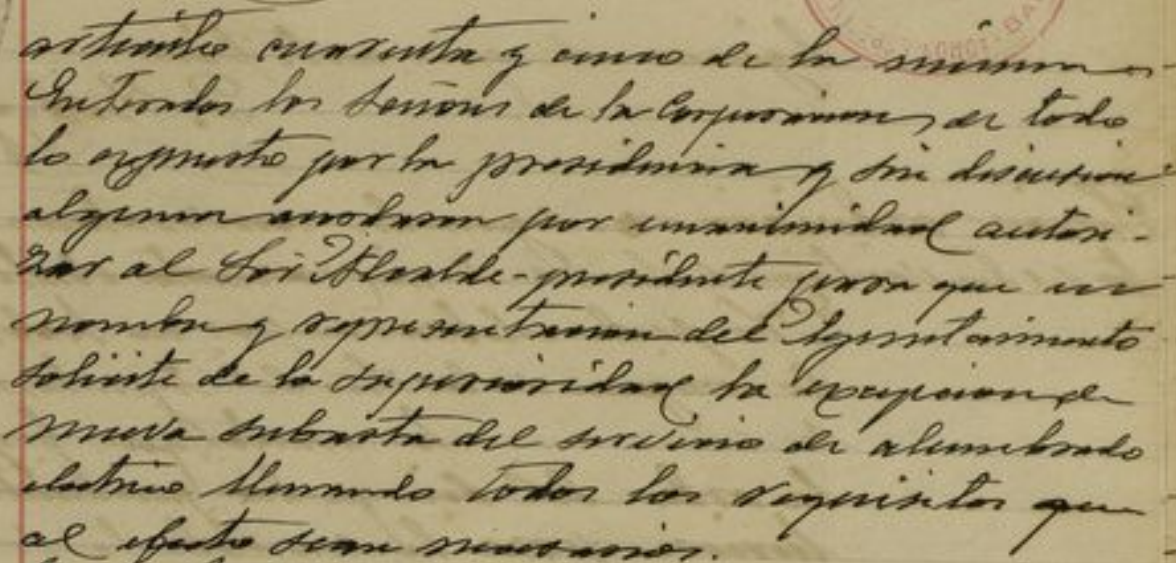 articulo cuarenta y cinco de la misma
Enterados los Señores de la Corporacion, de todo
lo expuesto por la presidencia y sin discusion
alguna acordaron por unanimidad autori-
zar al Sor Alcalde-presidente para que en
nombre y representacion del Ayuntamiento
solicite de la superioridad la excepcion de
nueva subasta del servicio de alumbrado
electrico llenando todos los requisitos que
al efecto sean necesarios.